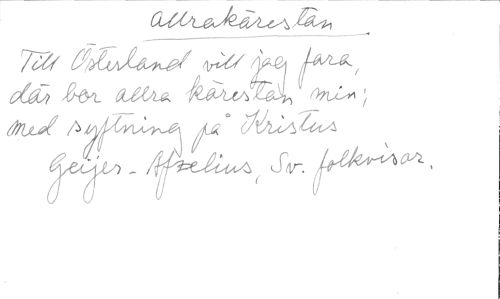 allrakärestan
Till Österland vill jag fara,
där bor allra kärestan min;
med syftning på Kristus
Geijer-Afzelius, Sv. folkvisor.